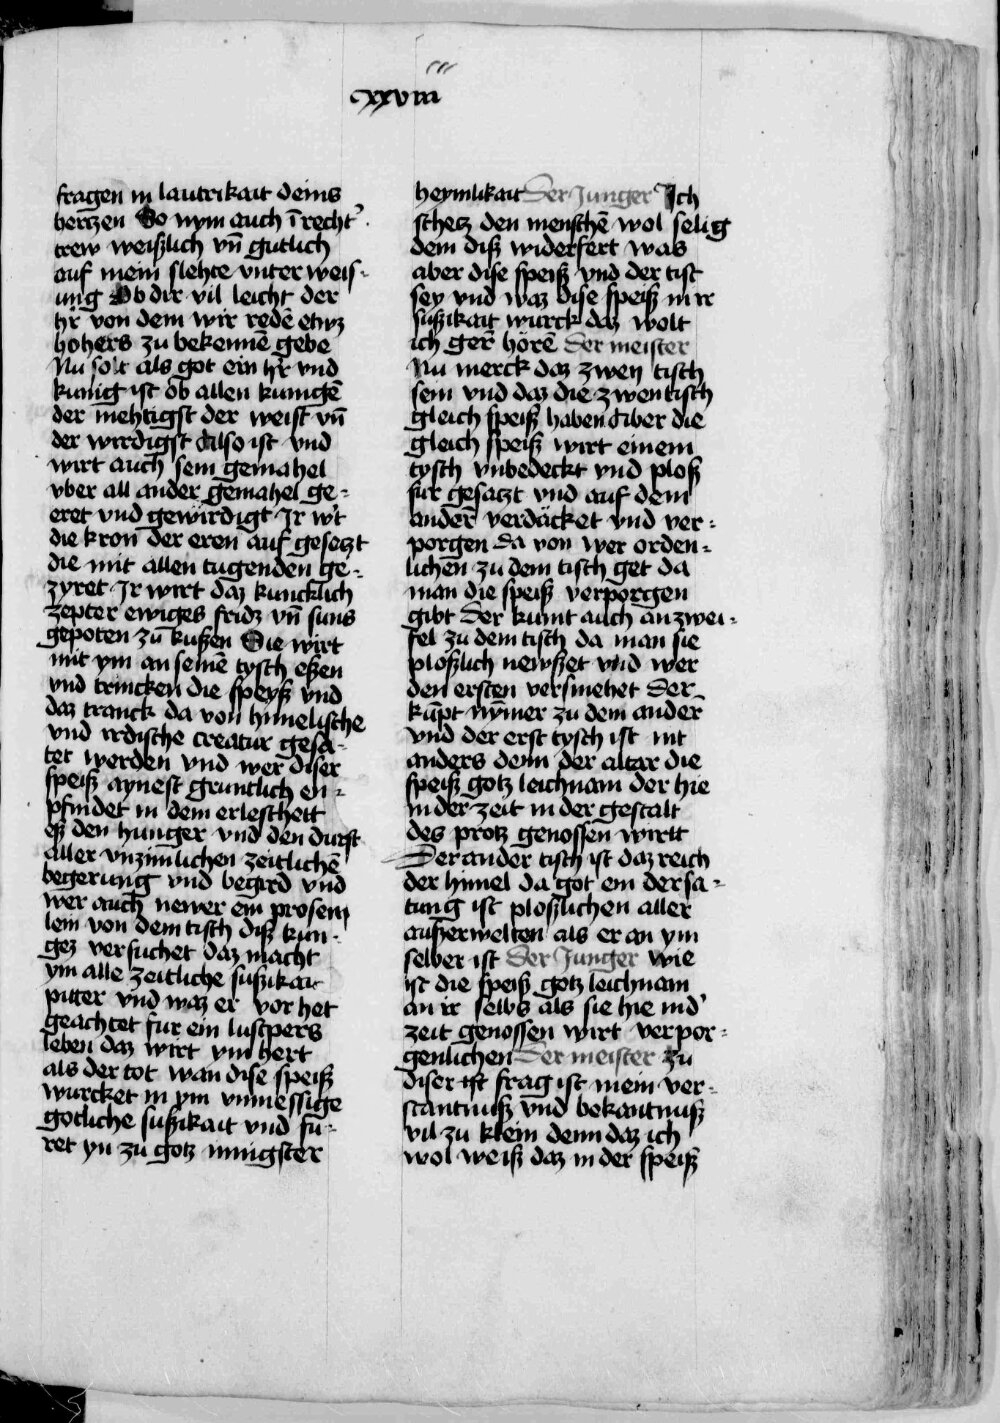 cxxviii
fragen in lautrikait deins
hertzen So nym auch ī recht'
trew weißlich vn̄ gutlich
auf mein slehte vnter weis-
ung Ob dir vil leicht der
hr̄ von dem wir redē etwz
hohers zu bekennē gebe
Nu solt als got ein hr̄ vnd
kunig ist ob allen kunigē
der mehtigst der weist vn̄
der wirdigst Also ist vnd
wirt auch sein gemahel
vber all ander gemahel ge-
eret vnd gewirdigt Ir w't
die kron der eren auf gesetzt
die mit allen tugenden ge-
zyret Ir wirt daz kuncklich
zepter ewiges fridz vn̄ suns
gepoten zu kußen Die wirt
mit ym an seinē tysch eßen
vnd trincken die speyß vnd
daz tranck da von himelische
vnd irdische creatur gesa-
tet werden vnd wer diser
speiß aynest gruntlich en-
pfindet in dem erleschett
eß den hunger vnd den durst
aller vnzimlichen zeitlichē
begerung vnd begird vnd
wer auch newer ein prosem
lein von dem tisch diß kun-
gez versuchet daz macht
ym alle zeitliche sußikait
pitter vnd waz er vor het
geachtet fur ein lustpers
leben daz wirt ym hert
als der tot wan dise speiß
wurcket in ym vnmessige
gotliche sußikait vnd fu-
ret yn zu gotz innigster
heymlikait Der Junger Ich
schetz den menschē wol selig
dem diß widerfert was
aber dise speiß vnd der tist
sey vnd waz dise speiß in ir
sußikait wurck daz wolt
ich gern̄ hörē Der meister
Nu merck daz zwen tisch
sein vnd daz die zwen tisch
gleich speiß haben Aber die
gleich speiß wirt einem
tysch vnbedeckt vnd ploß
fur gesatzt vnd auf dem
andern̄ verdäcket vnd ver-
porgen da von wer orden-
lichen zu dem tisch get da
man die speiß verporgen
gibt Der kumt auch an zwei-
fel zu dem tisch da man sie
ploßlich newßet vnd wer
den ersten versmehet Der
kūpt nȳmer zu dem ander
vnd der erst tysch ist nit
anders denn der altar die
speiß gotz leichnam der hie
in der zeit in der gestalt
des protz genossen wirtt
Der ander tisch ist daz reich
der himel da got ein der sa-
tung ist ploßlichen aller
außerwelten als er an ym
selber ist Der Junger wie
ist die speiß gotz leichnam
an ir selbs als sie hie in d'
zeit genossen wirt verpor-
genlichen Der meister zu
diser ist frag ist mein ver-
stantnuß vnd bekantnuß
vil zu klein denn daz ich
wol weiß daz in der speiß